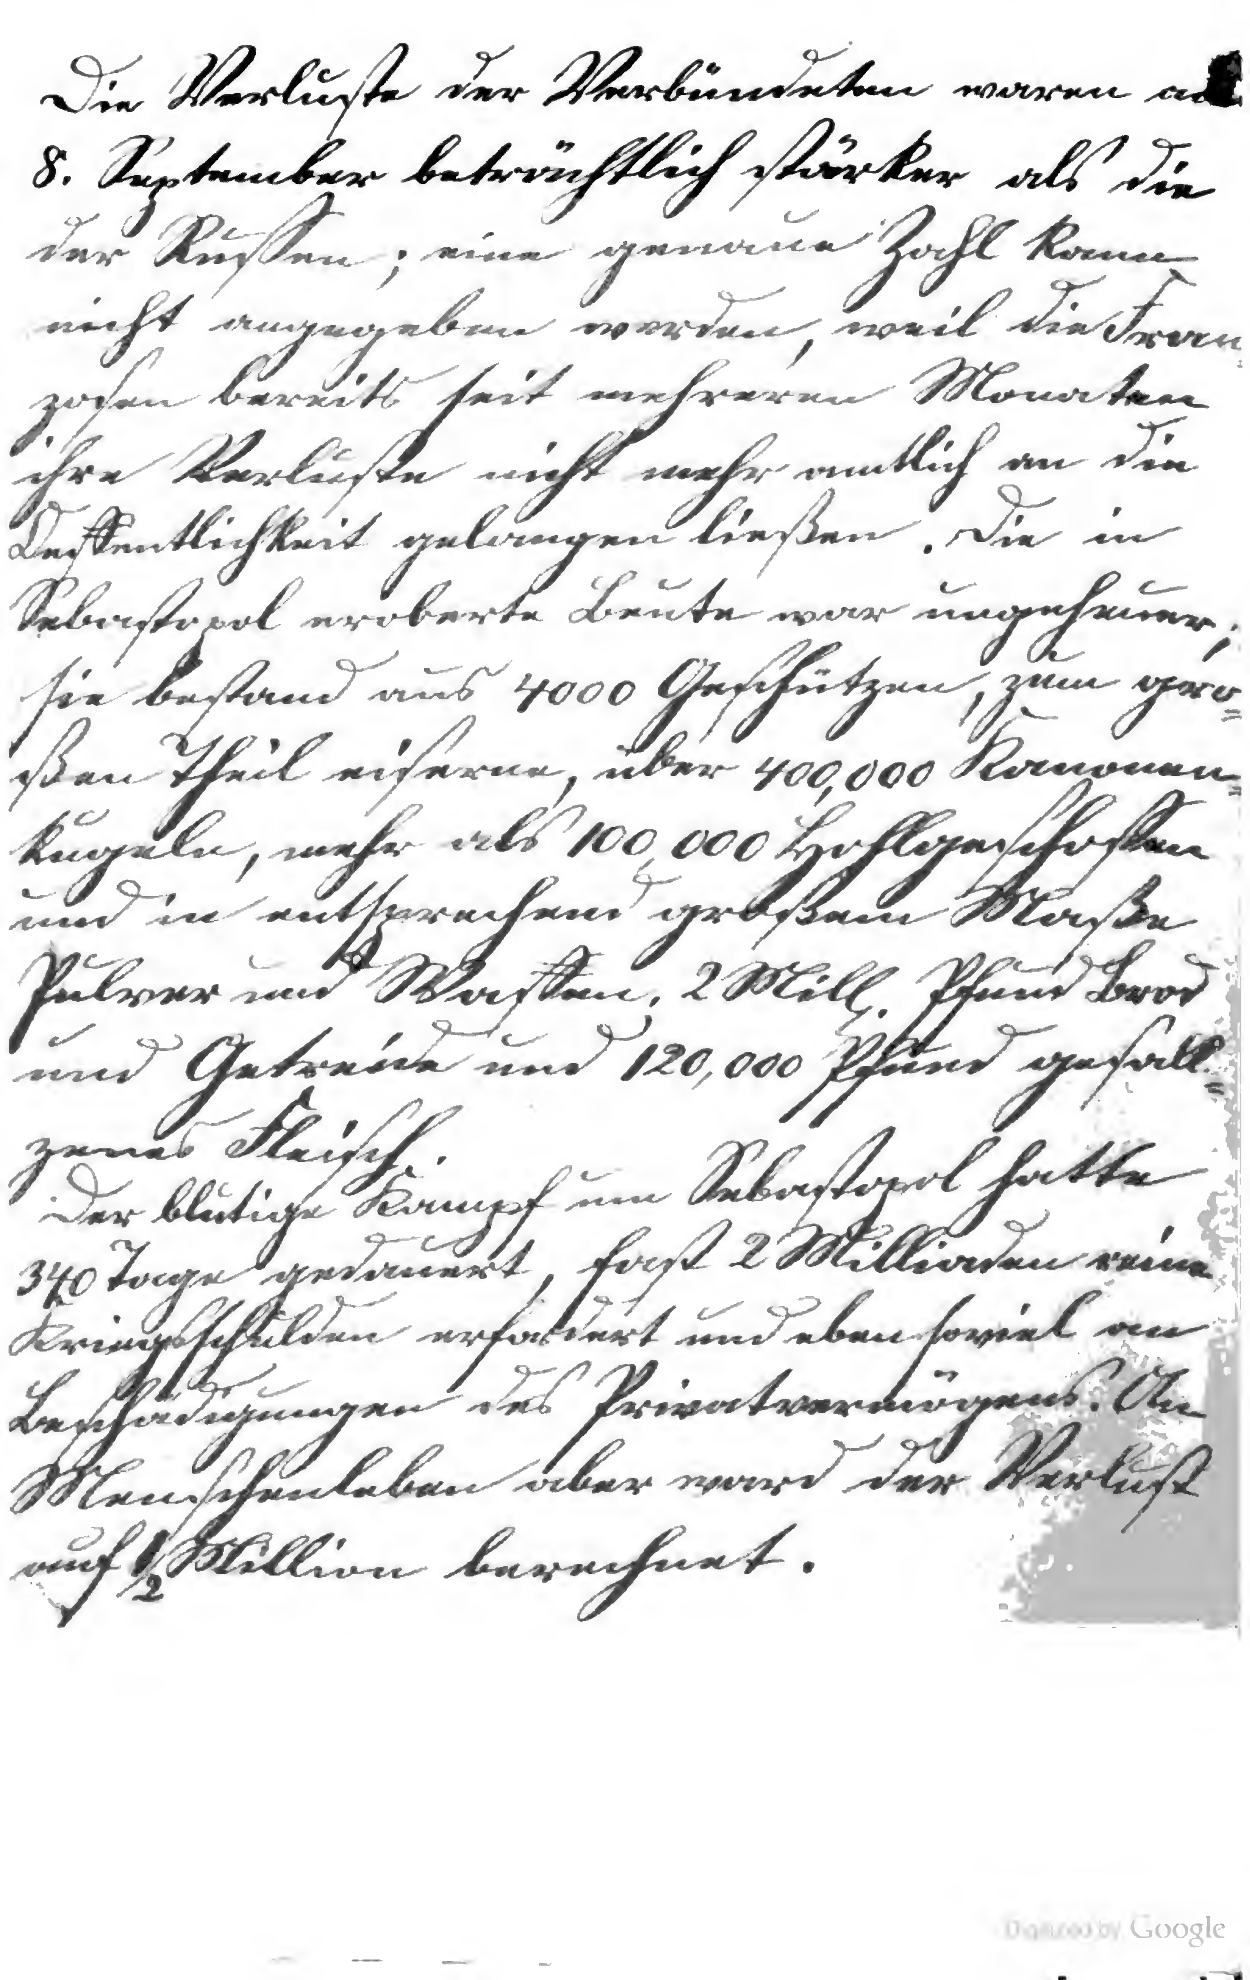 Die Verluste der Verbündeten waren am
8. September beträchtlich stärker als die
der Russen; eine genaue Zahl kann
nicht angegeben werden, weil die Fran
zosen bereits seit mehreren Monaten
ihre Verluste nicht mehr amtlich an die
Oeffentlichkeit gelangen ließen. Die in
Sebastopol eroberte Beute war ungeheuer;
sie bestand aus 4000 Geschützen, zum gro=
ßen Theil eiserne, über 400,000 Kanonen=
kugeln, mehr als 100,000 Hohlgeschossen
und in entsprechend großem Maße
Pulver und Waffen, 2 Mill. Pfund Brod
und Getreide und 120,000 Pfund gesall=
zenes Fleisch.
Der blutige Kampf um Sebastopol hatte
340 Tage gedauert, fast 2 Milliaden reine
Kriegsschulden erfordert und eben soviel an
Beschädigungen des Privatvermögens. An
Menschenleben aber ward der Verlust
auf 1/2 Million berechnet.
Digitized by Google